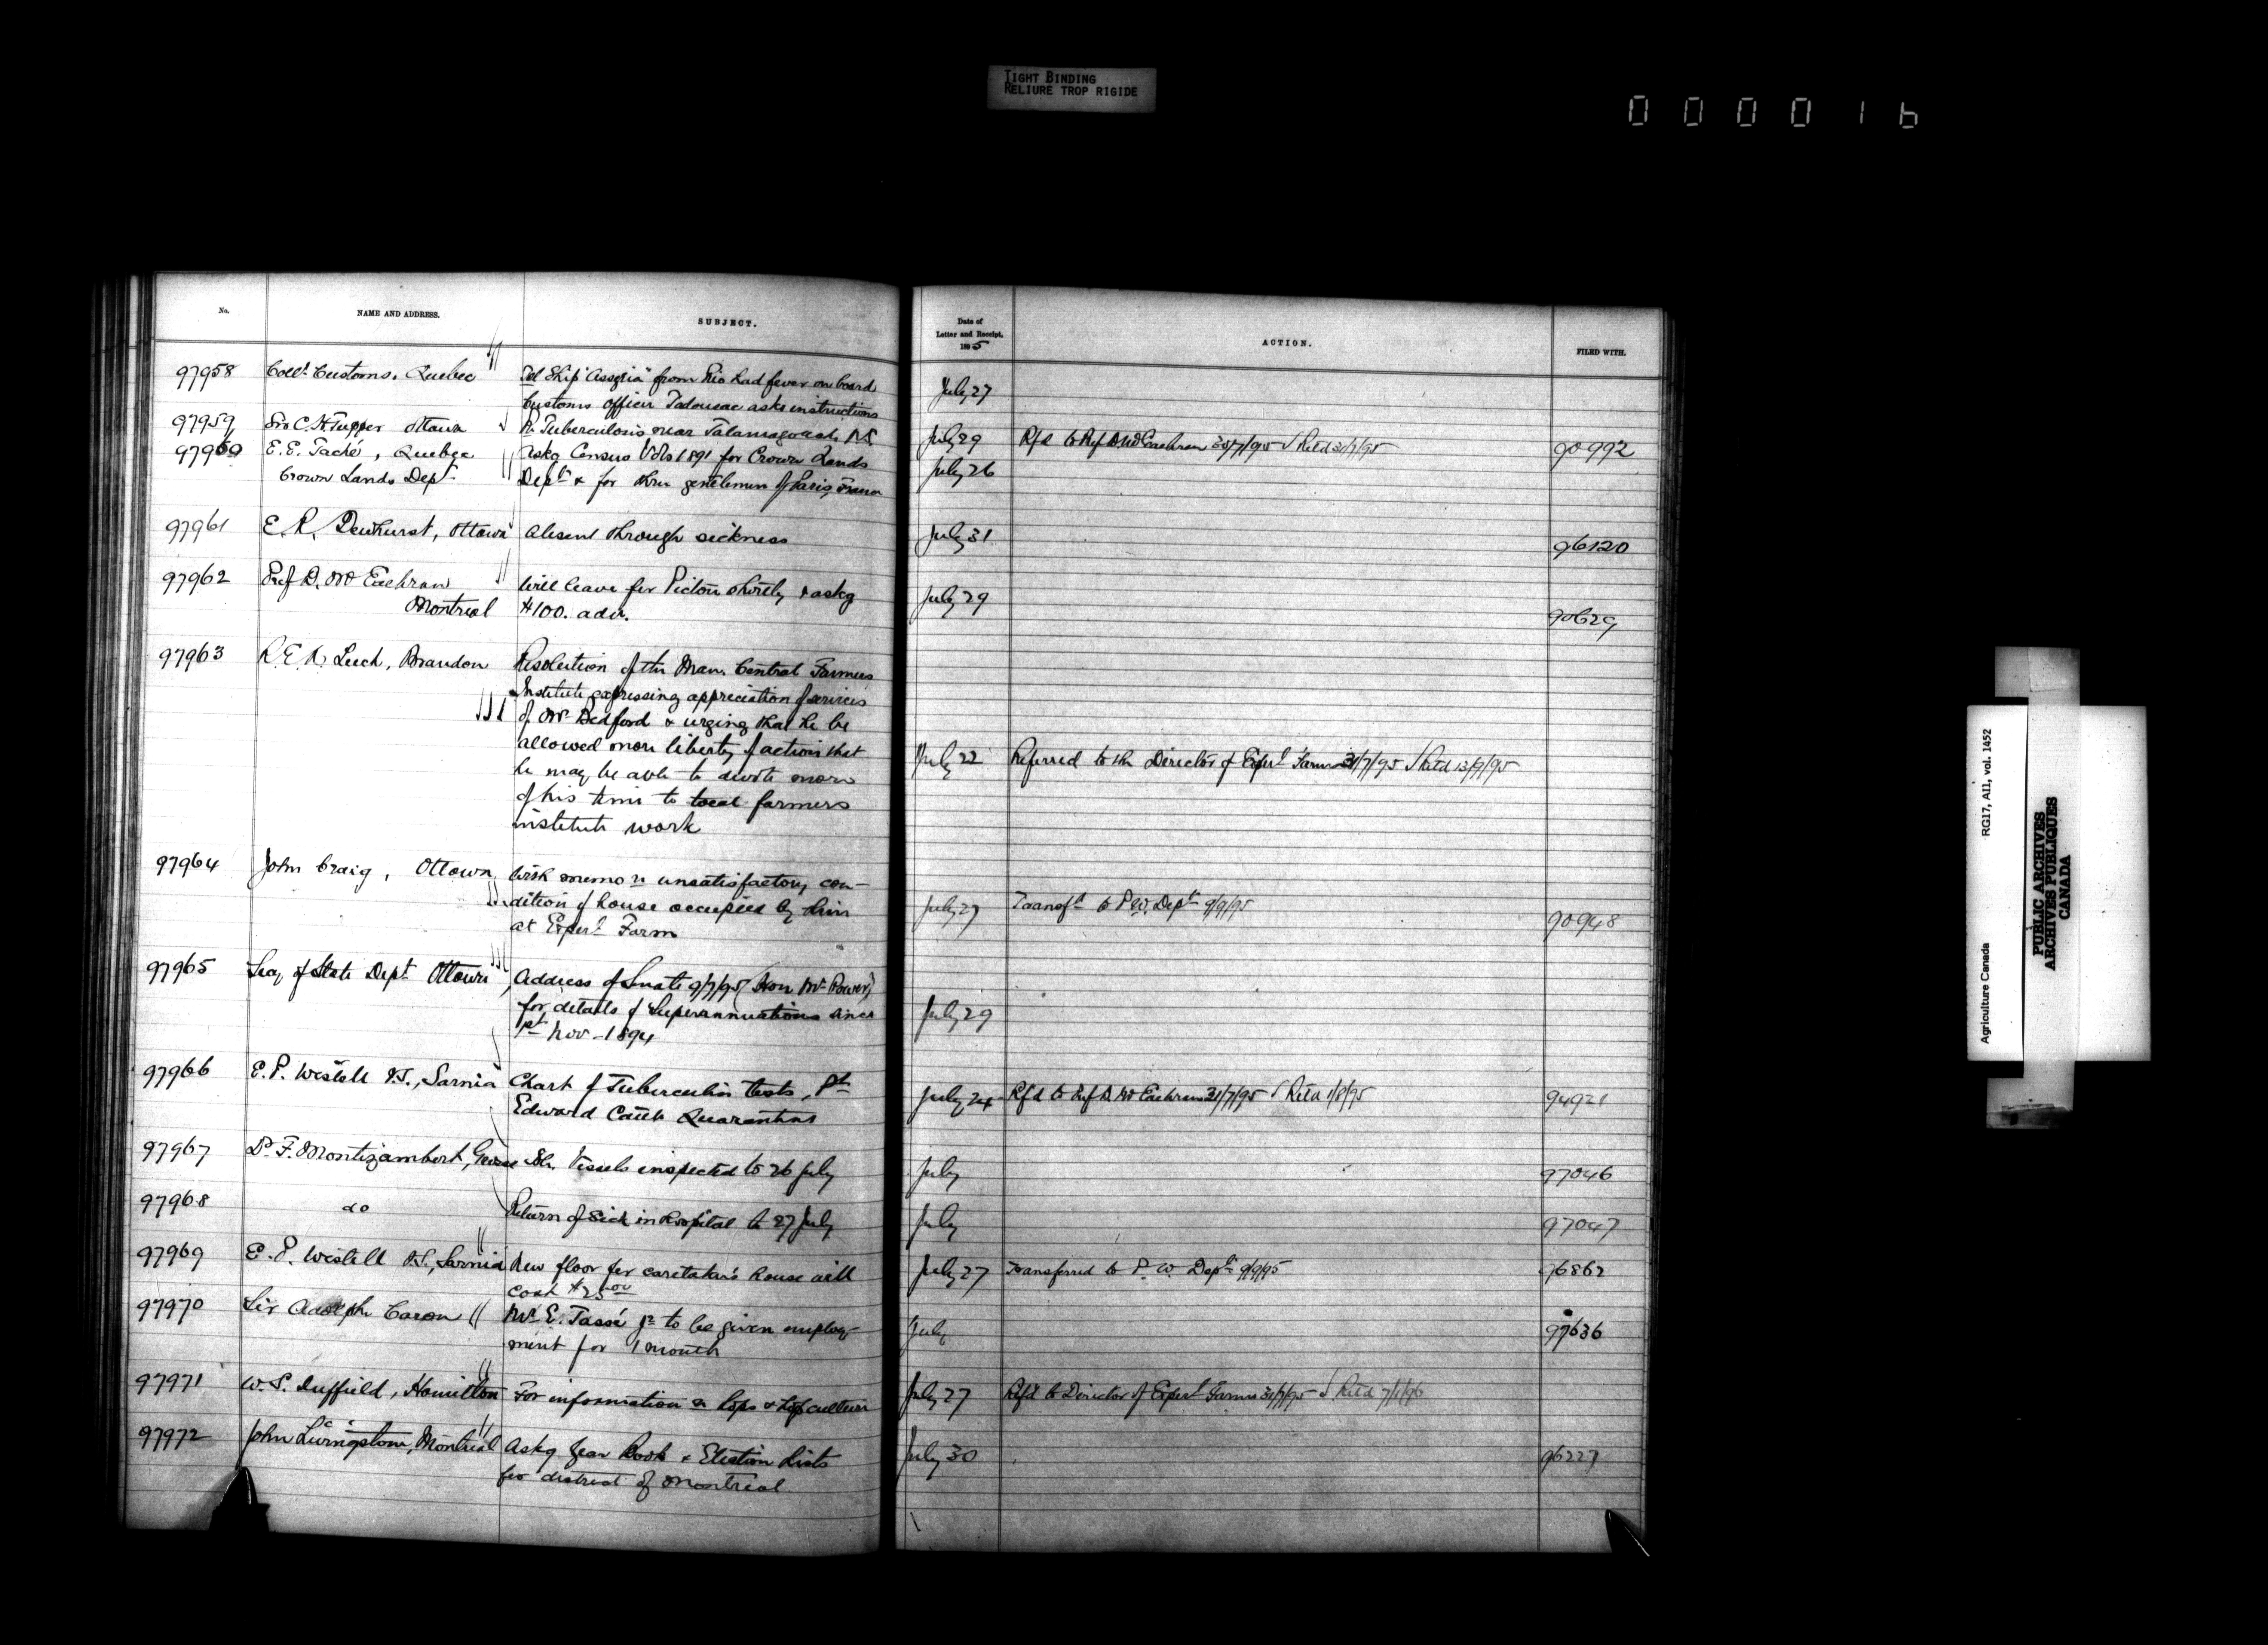 TIGHT BINDING
RELIURE TROP RIGIDE
000016
No. NAME AND ADDRESS. SUBJECT.
Date of
Letter and Receipt.
1895
ACTION. FILED WITH.
97958 Coll.r Customs, Quebec Tel Ship "Assyria" from Rio had fever on board July 27
Customs Officer Tadousac asks instructions
97959 Sir C. H. Tupper Ottawa Re Tuberculosis near Tatamagouche N.S. July 29 Rfd to Prof D. McEachran 30/7/95 √ Retd 31/7/95 90992
97960 E. E. Taché, Quebec askg Census Vols 1891 for Crown Lands July 26
Crown Lands Dept Dept & for three gentlemen of Paris, France
97961 E. R. Dewhurst, Ottawa absent through sickness July 31 96120
97962 Prof D. McEachran Will leave for Pictou shortly & askg July 29
Montreal $100. adv. 90629
97963 R. E. A. Leech, Brandon Resolution of the Man. Central Farmers
Institute expressing appreciation of services
of Mr Bedford & urging that he be
allowed more liberty of action that July 22 Referred to the Director of Experl Farms 31/7/95 √ Retd 13/9/95
he may be able to devote more
of his time to local farmers
institute work
97964 John Craig, Ottawa with memo re unsatisfactory con-
dition of house occupied by him July 27 Transfd to P. W. Dept 9/9/95 90948
at Experl Farm
97965 Secy of State Dept Ottawa Address of Senate 9/7/95 (Hon Mr Power)
for details of Superannuations since July 29
1st Nov - 1894
97966 E. P. Westell V.S., Sarnia Chart of Tuberculin tests, Pt July 24 Rfd to Prof D. McEachran 31/7/95 √ Retd 1/8/95 94921
Edward Cattle Quarantine
97967 Dr F. Montizambert, Grosse Isle, Vessels inspected to 26 July July 97046
97968 do Return of Sick in Hospital to 27 July July 97047
97969 E. P. Westell V.S., Sarnia New floor for caretaker's house will July 27 Transferred to P. W. Dept 9/9/95 96862
cost $25.00
97970 Sir Adolphe Caron Mr E. Tassé jr to be given employ- July 97636
ment for 1 month
97971 W. S. Duffield, Hamilton For information re hops & hop culture July 27 Rfd to Director of Experl Farms 31/7/95 √ Retd 7/1/96
97972 John Livingstone, Montreal Askg Year Book & Election Lists July 30 96227
for district of Montreal
Agriculture Canada RG17, AII, vol. 1452
PUBLIC ARCHIVES
ARCHIVES PUBLIQUES
CANADA